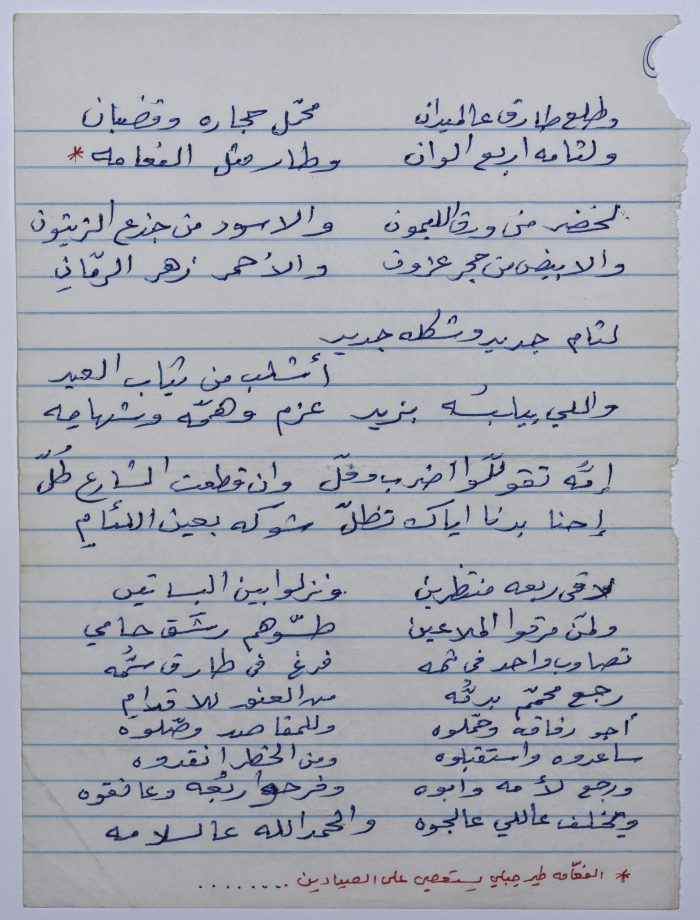 وطلع طارق عالميدان محمّل حجاره وقضبان
ولثامه اربع الوان وطار مثل الفعامه *
لخضر من ورق الليمون والاسود من جذع الزيتون
والابيض من حجر عزون والأحمر زهر الرمّاني
لثام جديد وشكله جديد
أشلب من ثياب العيد
واللي بيلبسُه بزيد عزم وهمّه وشهامه
إمُّه تقوللّوا اضرب وفلّ وان قطعت الشارع طُلّ
إحنا بدنا اياك تظلّ شوكه بعين اللئامِ
لاقى ربعه منتظرين ونزلوا بين البساتين
ولمّن مرقوا الملاعين طسّوهم رشَق حامي
تصاوب واحد في ثمه فرغ في طارق سُمّه
رجع محمّم بدمُّه من العنق للاقدامِ
أجو رفاقه وحمّلوه وللمقاصد وصّلوه
ساعدوه واستقبلوه ومن الخطر انقدوه
ورجع لأمه وابوه وفرحو اربعُه وعانقوه
ويخلف عاللي عالجوه والحمدالله عالسلامه
* الفعّامه طير جبلي يستعصي على الصيادين ........